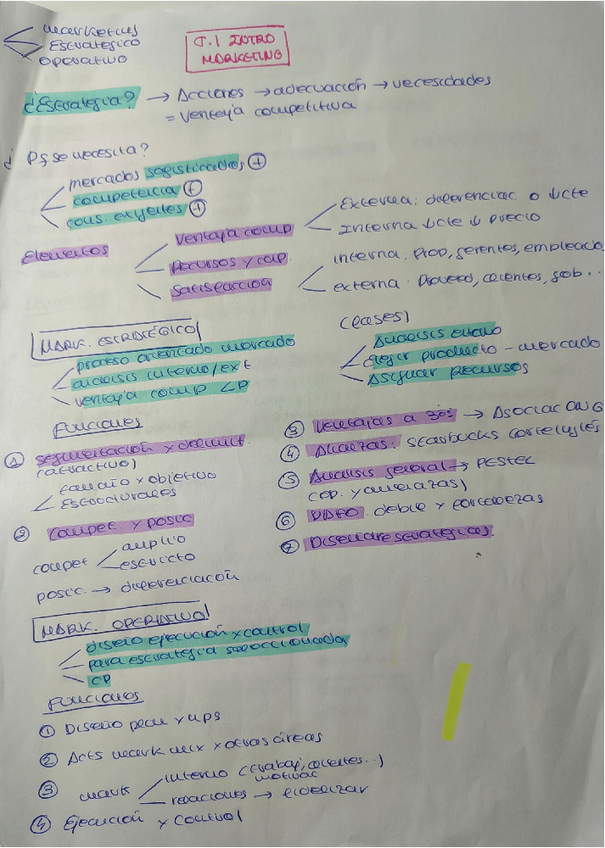 marketing
estratégico
operativo
T.1 INTRO
MARKETING
¿Estrategia? → Acciones → adecuación → necesidades
= ventaja competitiva
¿Pq se necesita?
mercados sofisticados +
competencia +
cons. exigentes +
Elementos
ventaja comp
Externa: diferenciac. o ↓cte
Interna ↓cte ↓ precio
recursos y cap.
satisfacción
interna: Prop, gerentes, empleado
externa: Proveed, clientes, gob...
MARK. ESTRATÉGICO
proceso orientado mercado
análisis interno/ext
ventaja comp LP
(fases)
Análisis
elegir producto - mercado
Asignar recursos
Funciones
① segmentación y
(atractivo)
tamaño y objetivo
Estructurales
② compet y posic
compet
amplio
estricto
posic. → diferenciación
③ ventajas a 3os → Asociac ONG
④ Alianzas. Starbucks
⑤ Análisis general → PESTEL
(op. y amenazas)
⑥ DAFO. debild y fortalezas
⑦ Diseñar estrategias.
MARK. OPERATIVO
diseño ejecución y control
para estrategia seleccionada
CP
Funciones
① Diseño plan y
② Acts mark mix y otras áreas
③ mark
interno (trabaj, clientes..)
motivac
relaciones → fidelizar
④ Ejecución y control